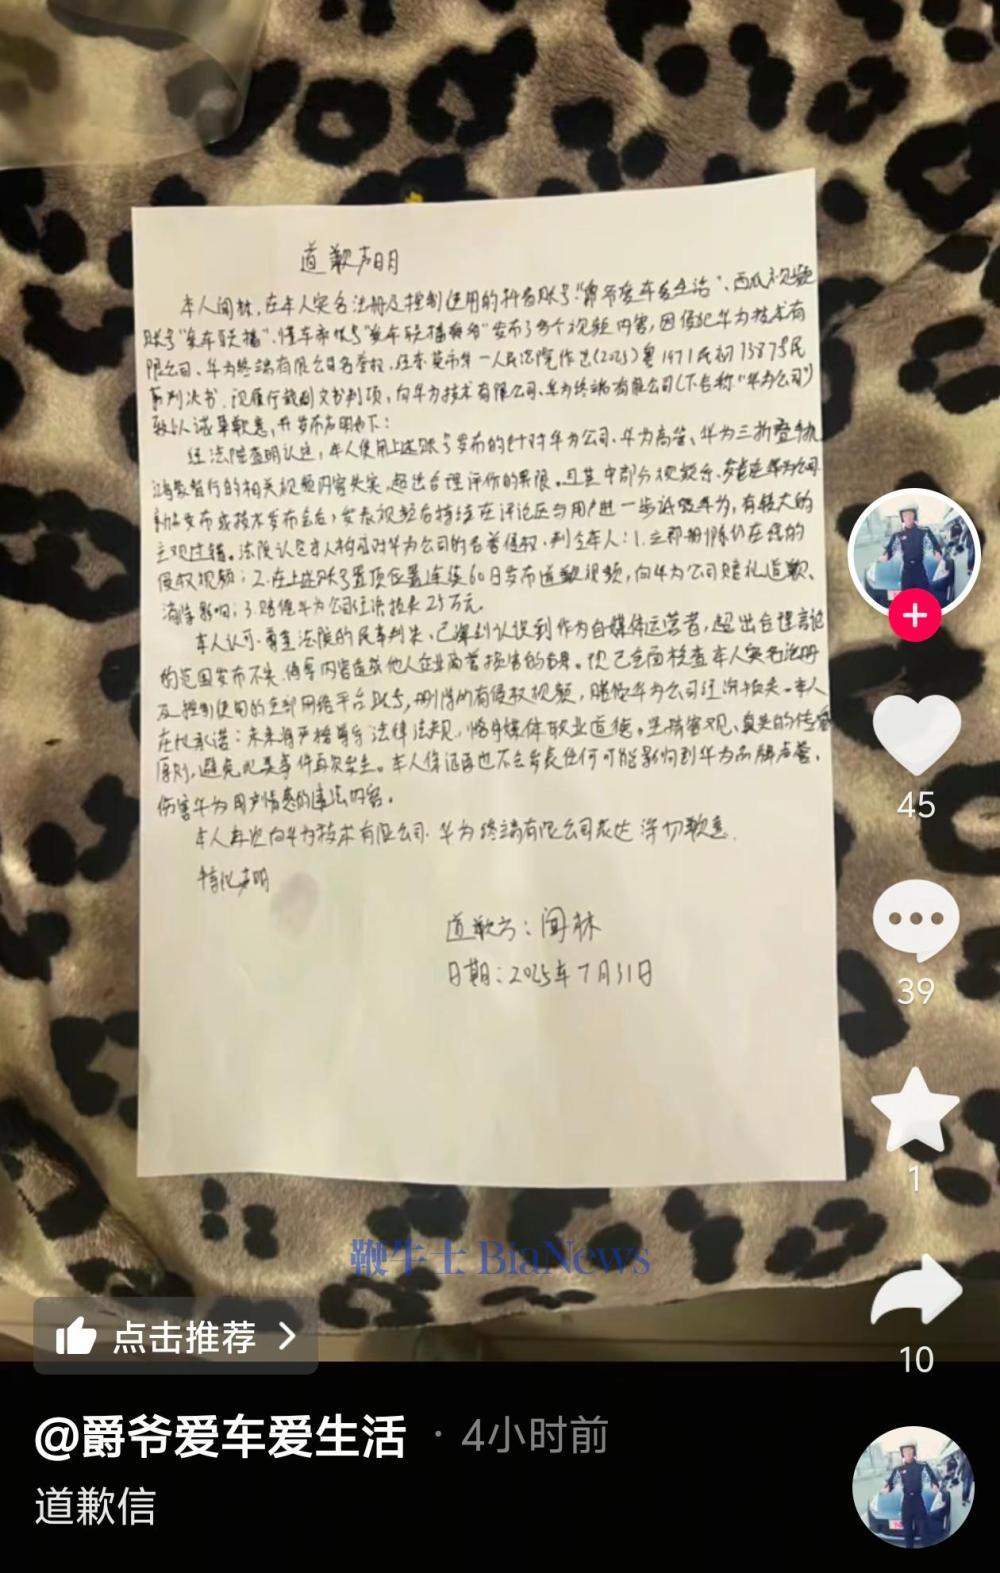 道歉声明
本人闻林,在本人实名注册及控制使用的抖音账号“爵爷爱车爱生活”、西瓜视频
账号“发车联播”、懂车帝账号“发车联播” 发布了多个视频内容,因侵犯华为技术有
限公司、华为终端有限公司名誉权,经东莞市第一人民法院作出(2025)粤1971民初 民
事判决书。现履行裁判文书判项,向华为技术有限公司、华为终端有限公司(下合称“华为公司”)
致以诚挚歉意,并发布声明如下:
经法院查明认定,本人使用上述账号发布的针对华为公司、华为高管、华为三折叠手机
鸿蒙智行的相关视频内容失实,超出合理评价的界限。且其中部分视频系 华为公司
新品发布或技术发布会后,发表视频后持续在评论区与用户进一步诋毁华为,有较大的
主观过错。法院认定本人构成对华为公司的名誉侵权,判令本人:1.立即删除仍在线的
侵权视频;2.在上述账号置顶位置连续60日发布道歉视频,向华为公司赔礼道歉、
消除影响;3.赔偿华为公司经济损失25万元。
本人认可、尊重法院的民事判决,已深刻认识到作为自媒体运营者,超出合理言论
的范围发布不实、侮辱内容造成他人企业商誉损害的后果。现已全面核查本人实名注册
及控制使用的全部网络平台账号,删除所有侵权视频,赔偿华为公司经济损失。本人
在此承诺:未来将严格遵守法律法规,恪守媒体职业道德。坚持客观、真实的传播
原则,避免此类事件再次发生。本人保证再也不会发表任何可能影响到华为品牌声誉,
伤害华为用户情感的违法内容。
本人再次向华为技术有限公司、华为终端有限公司表达深切歉意。
特此声明
道歉方:闻林
日期:2025年7月31日
45
39
1
10
鞭牛士 BiaNews
点击推荐
@爵爷爱车爱生活 · 4小时前
道歉信